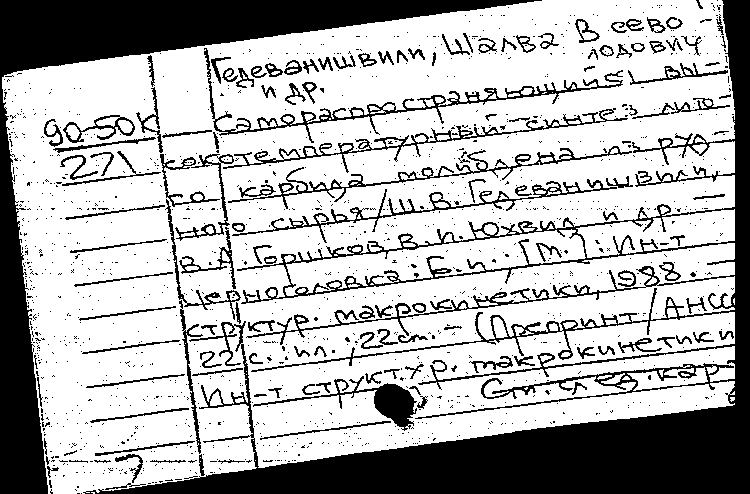 Гедеванишвили, Шалва Всево-
лодович
и др.
90-50к
271
Самораспространяющийся вы-
сокотемпературный синтез лито-
го карбида молибдена из руд-
ного сырья / Ш. В. Гедеванишвили,
В. А. Горшков, В. И. Юхвид и др. —
Черноголовка : Б. и. : [М.] : Ин-т
структур. макрокинетики, 1988. —
22 с. : ил. ; 22 см. — (Препринт / АН СССР
Ин-т структур. макрокинетики
См. след. кар-